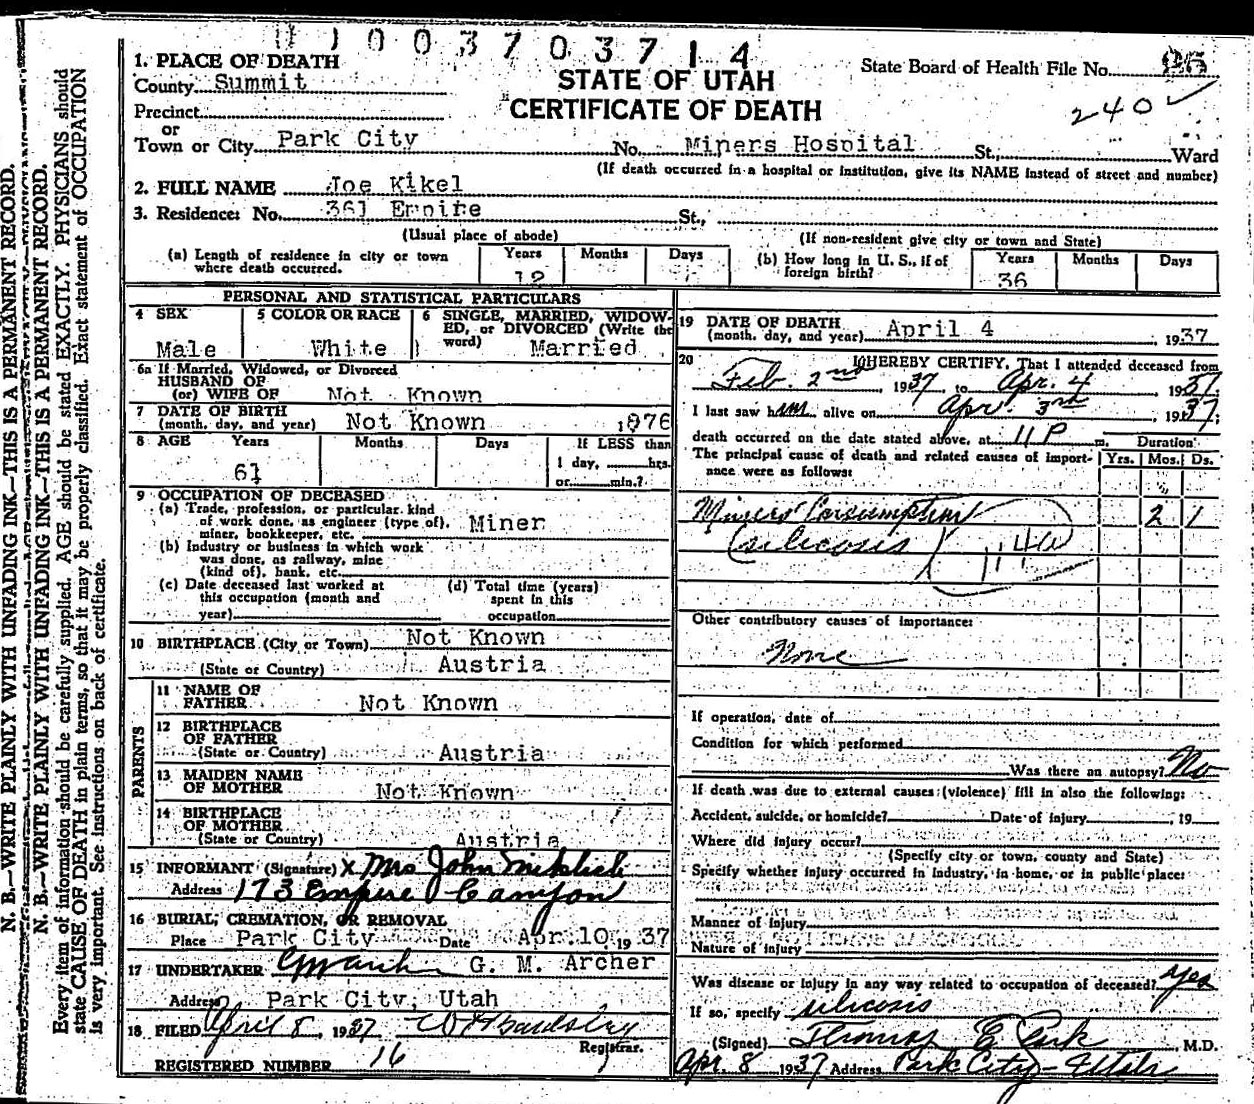 1003703714
N. B.—WRITE PLAINLY WITH UNFADING INK—THIS IS A PERMANENT RECORD.
N. B.—WRITE PLAINLY WITH UNFADING INK—THIS IS A PERMANENT RECORD.
Every item of information should be carefully supplied. AGE should be stated EXACTLY. PHYSICIANS should
state CAUSE OF DEATH in plain terms, so that it may be properly classified. Exact statement of OCCUPATION
is very important. See instructions on back of certificate.
STATE OF UTAH
CERTIFICATE OF DEATH
State Board of Health File No. 26
240
1. PLACE OF DEATH
County Summit
Precinct
or
Town or City Park City No. Miners Hospital St., Ward
(If death occurred in a hospital or institution, give its NAME instead of street and number)
2. FULL NAME Joe Kikel
3. Residence: No. 361 Empire St.,
(Usual place of abode) (If non-resident give city or town and State)
(a) Length of residence in city or town where death occurred. Years 12 Months Days
(b) How long in U. S., if of foreign birth? Years 36 Months Days
PERSONAL AND STATISTICAL PARTICULARS
4 SEX Male
5 COLOR OR RACE White
6 SINGLE, MARRIED, WIDOWED, or DIVORCED (Write the word) Married
6a If Married, Widowed, or Divorced
HUSBAND OF
(or) WIFE OF Not Known
7 DATE OF BIRTH
(month, day, and year) Not Known 1876
8 AGE Years 61 Months Days If LESS than
1 day, hrs.
or min.?
9 OCCUPATION OF DECEASED
(a) Trade, profession, or particular kind
of work done, as engineer (type of), Miner
miner, bookkeeper, etc.
(b) Industry or business in which work
was done, as railway, mine
(kind of), bank, etc.
(c) Date deceased last worked at
this occupation (month and
year)
(d) Total time (years)
spent in this
occupation
10 BIRTHPLACE (City or Town) Not Known
(State or Country) Austria
PARENTS
11 NAME OF
FATHER Not Known
12 BIRTHPLACE
OF FATHER
(State or Country) Austria
13 MAIDEN NAME
OF MOTHER Not Known
14 BIRTHPLACE
OF MOTHER
(State or Country) Austria
15 INFORMANT (Signature) x Mrs John Miklich
Address 173 Empire Canyon
16 BURIAL, CREMATION, OR REMOVAL
Place Park City Date Apr. 10, 1937
17 UNDERTAKER G. M. Archer
Address Park City, Utah
18 FILED April 8, 1937
Registrar.
REGISTERED NUMBER 16
19 DATE OF DEATH
(month, day, and year) April 4, 1937
20 I HEREBY CERTIFY, That I attended deceased from
Feb. 2nd, 1937 to Apr. 4 1937.
I last saw him alive on Apr. 3rd, 1937.
death occurred on the date stated above, at 11 P m. Duration
The principal cause of death and related causes of importance were as follows: Yrs. Mos. Ds.
Miners' Consumption 2 1
(silicosis) 114a
Other contributory causes of importance:
None
If operation, date of
Condition for which performed
Was there an autopsy? No
If death was due to external causes (violence) fill in also the following:
Accident, suicide, or homicide? Date of injury , 19
Where did injury occur?
(Specify city or town, county and State)
Specify whether injury occurred in industry, in home, or in public place:
Manner of injury
Nature of injury
Was disease or injury in any way related to occupation of deceased? Yes
If so, specify silicosis
(Signed) Thomas E M.D.
Apr. 8 1937 Address Park City - Utah